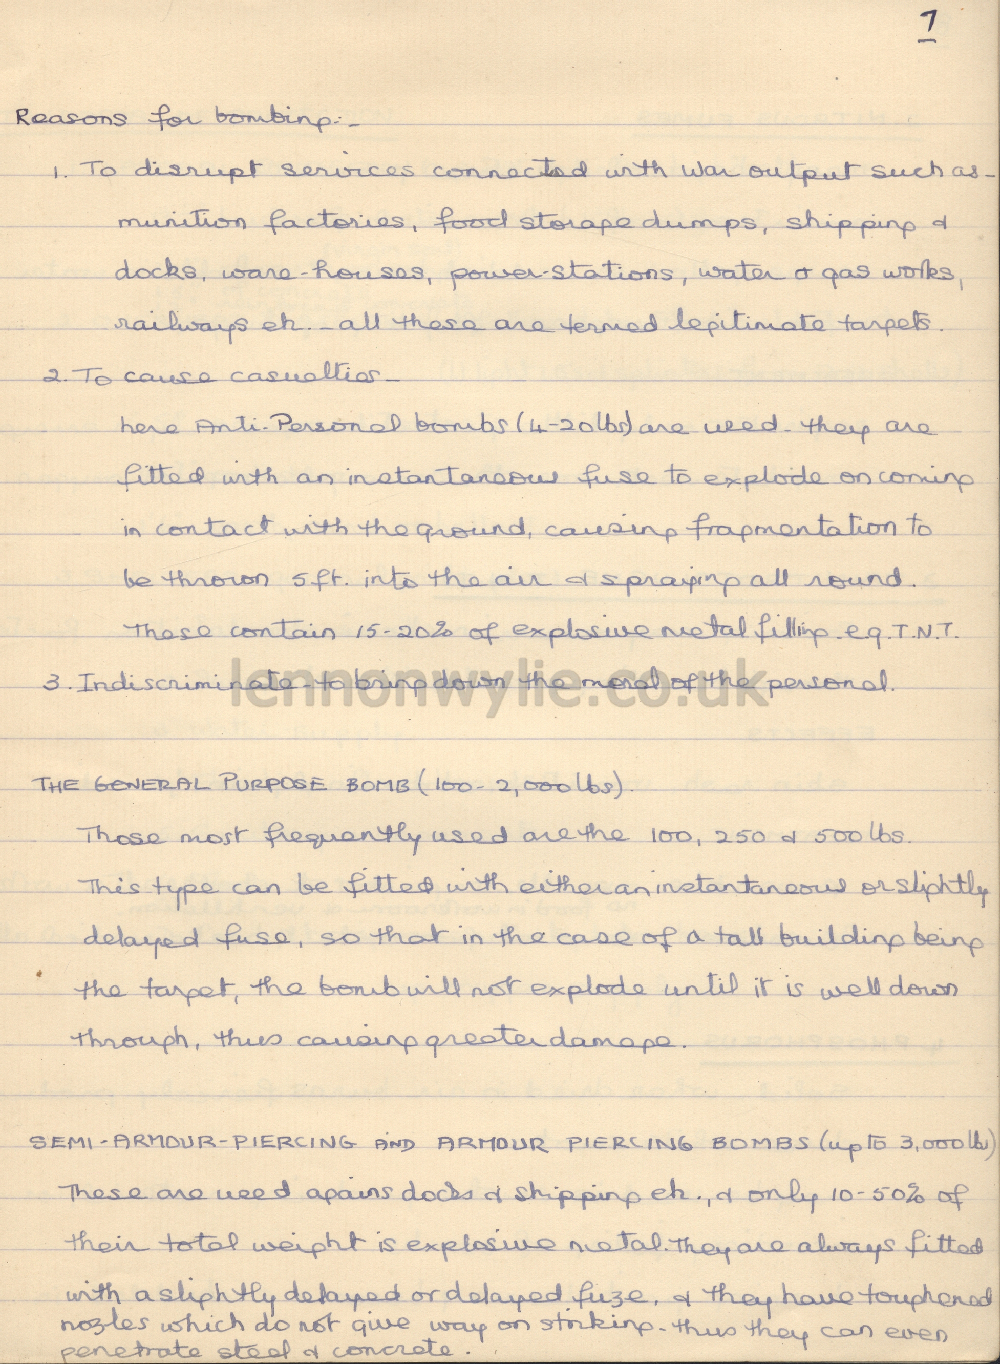 7
Reasons for bombing:-
1. To disrupt services connected with war output such as -
munition factories, food storage dumps, shipping &
docks, ware-houses, power-stations, water & gas works,
railways etc. - all these are termed legitimate targets.
2. To cause casualties -
here Anti-Personal bombs (4-20lbs) are used - they are
fitted with an instantaneous fuse to explode on coming
in contact with the ground, causing fragmentation to
be thrown 5ft. into the air & spraying all round.
These contain 15-20% of explosive metal filling e.g. T.N.T.
3. Indiscriminate - to bring down the moral of the personal.
lennonwylie.co.uk
THE GENERAL PURPOSE BOMB (100-2,000lbs).
Those most frequently used are the 100, 250 & 500lbs.
This type can be fitted with either an instantaneous or slightly
delayed fuse, so that in the case of a tall building being
the target, the bomb will not explode until it is well down
through, thus causing greater damage.
SEMI-ARMOUR-PIERCING AND ARMOUR PIERCING BOMBS (up to 3,000lbs)
These are used agains docks & shipping etc., & only 10-50% of
their total weight is explosive metal. They are always fitted
with a slightly delayed or delayed fuze, & they have toughened
nozles which do not give way on striking - thus they can even
penetrate steel & concrete.